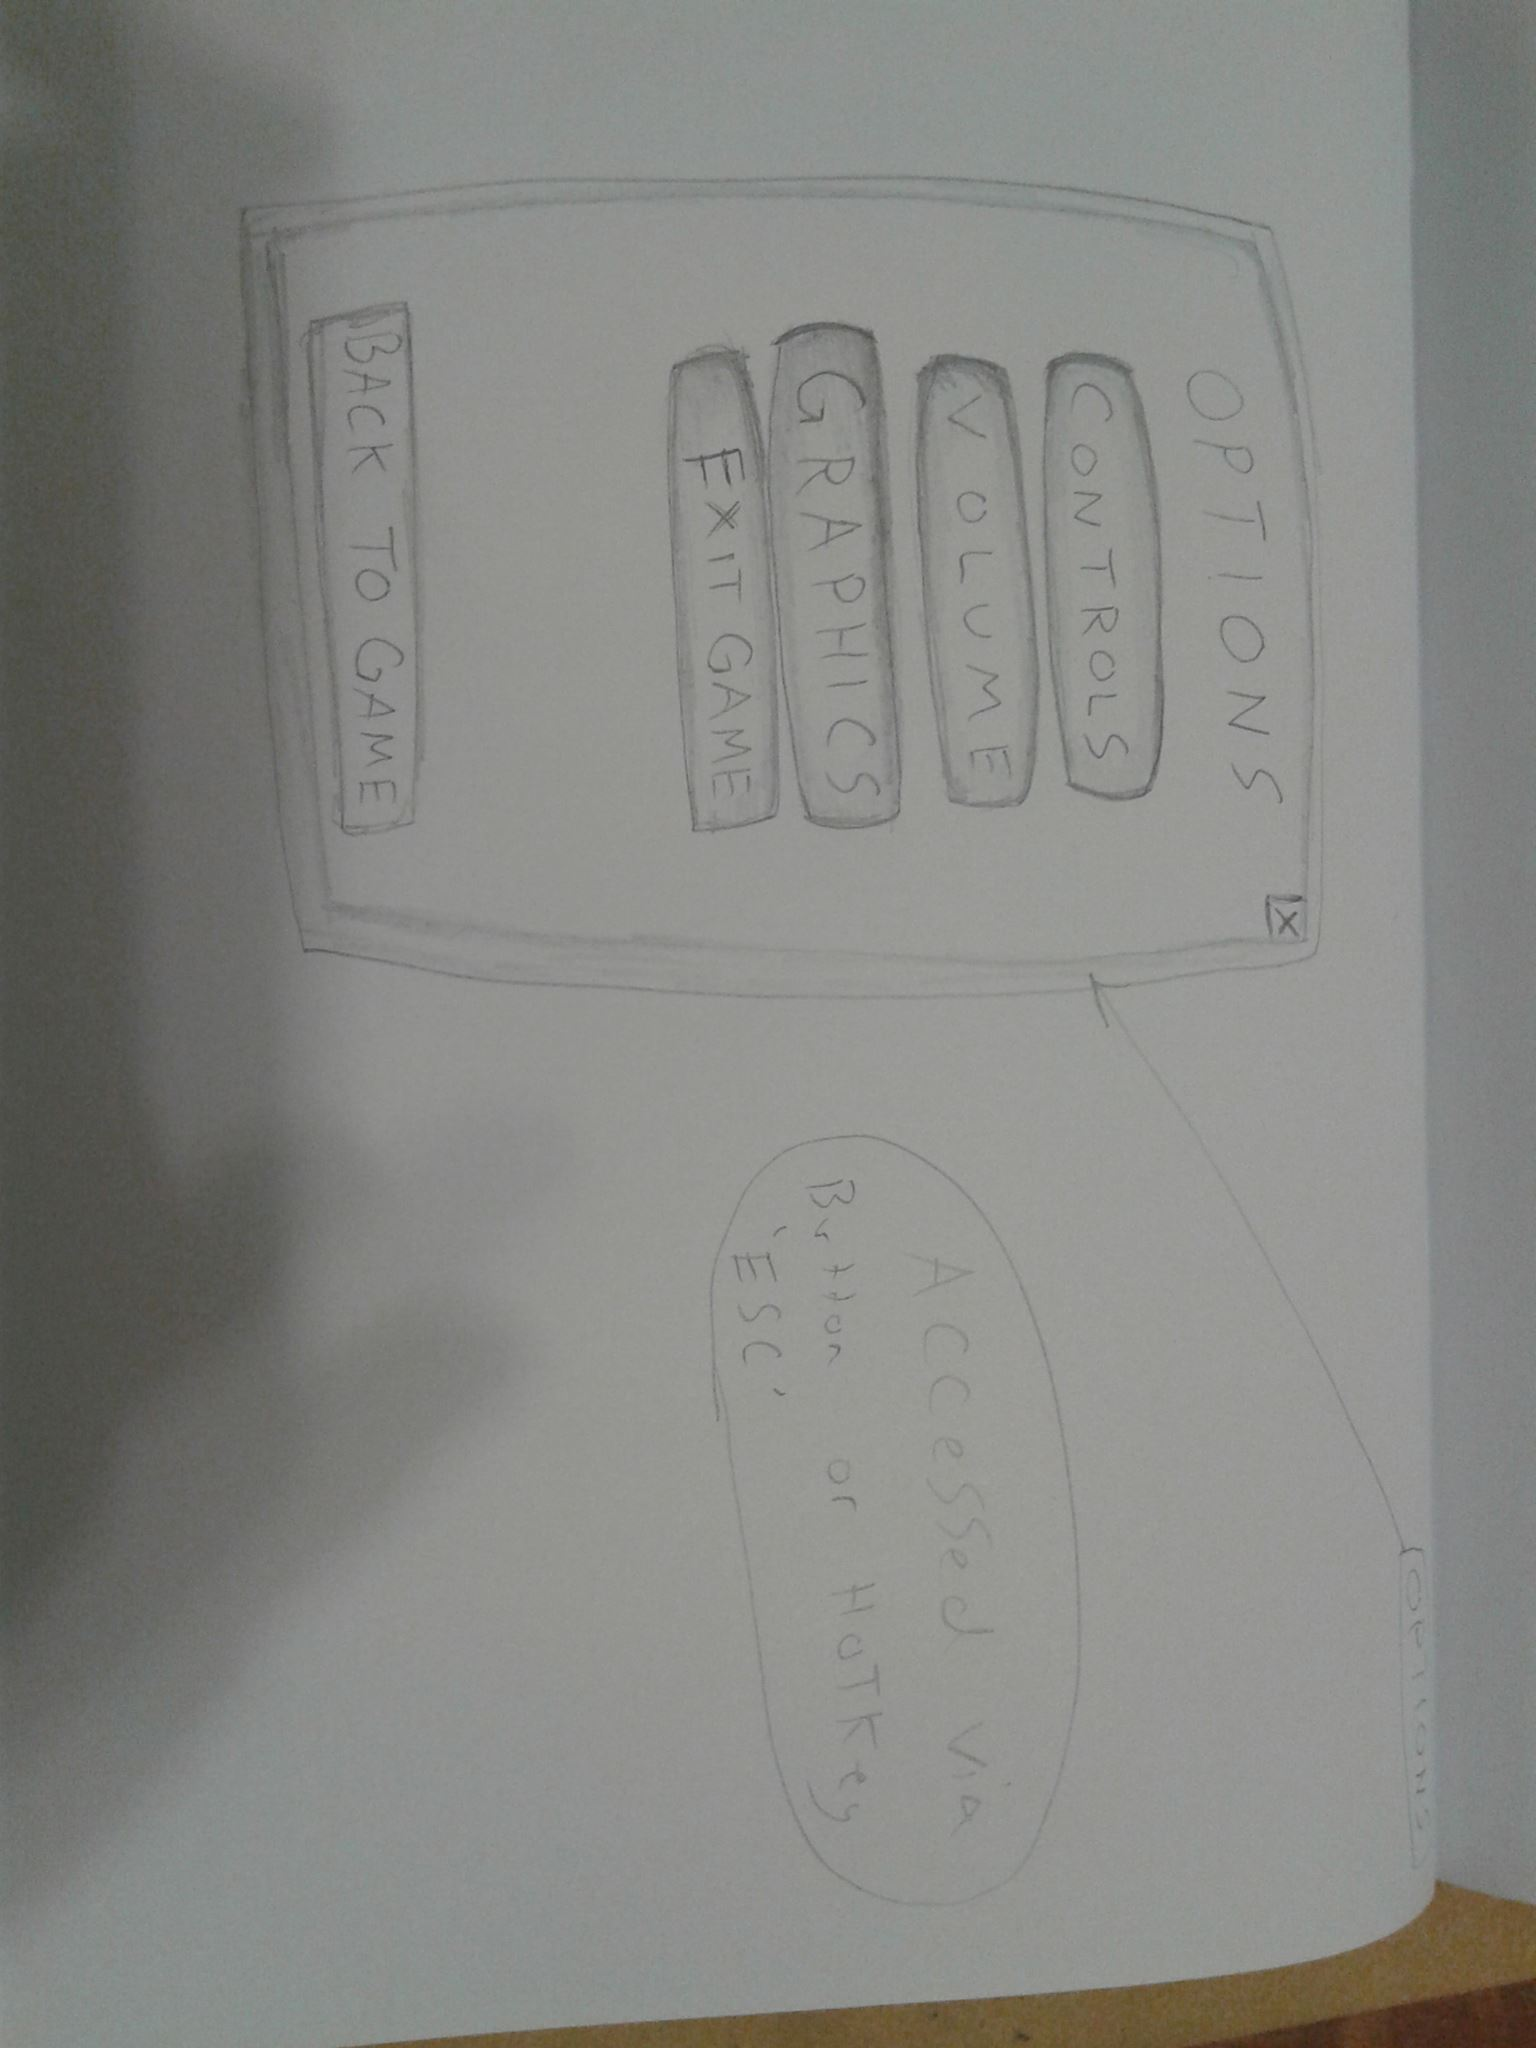 OPTIONS
X
CONTROLS
VOLUME
GRAPHICS
EXIT GAME
BACK TO GAME
OPTIONS
Accessed via
Button or HotKey
'ESC'